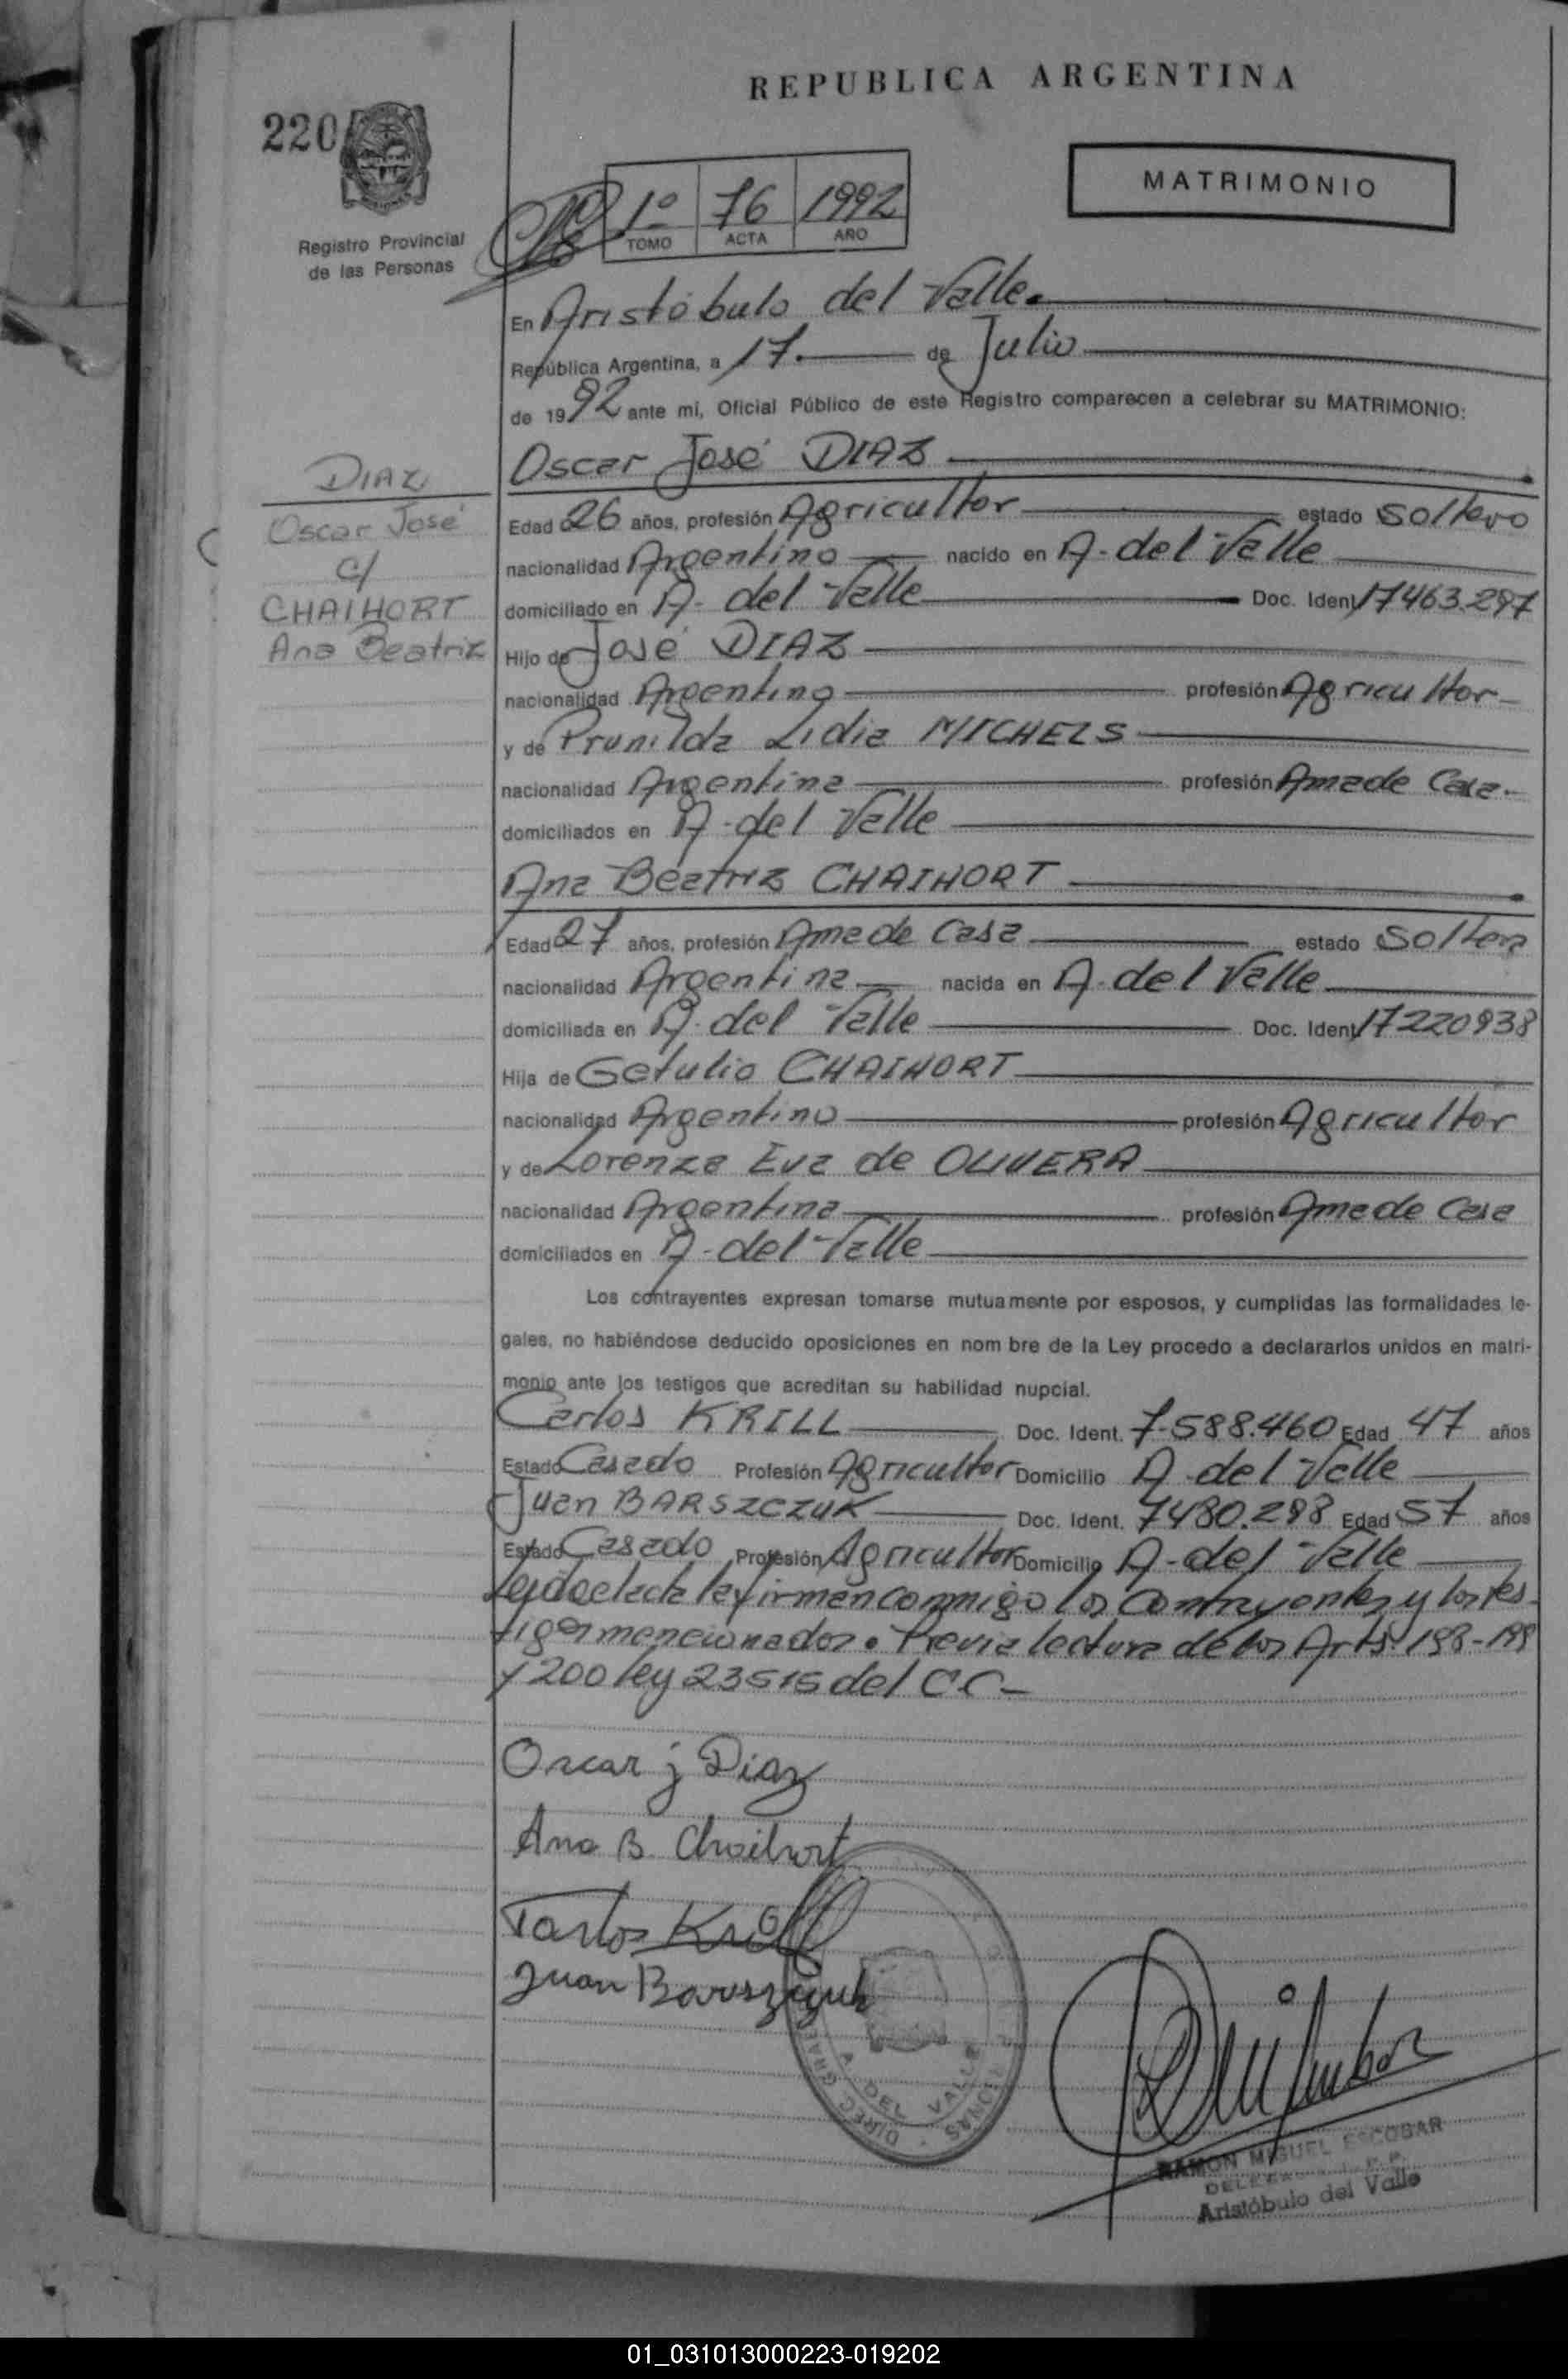 REPUBLICA ARGENTINA
220
MATRIMONIO
1º 76 1992
TOMO ACTA AÑO
Registro Provincial
de las Personas
En Aristóbulo del Valle.
República Argentina, a 17. de Julio
de 1992 ante mí, Oficial Público de este Registro comparecen a celebrar su MATRIMONIO:
DIAZ
Oscar José
c/
CHAIHORT
Ana Beatriz
Oscar José DIAZ
Edad 26 años, profesión Agricultor estado Soltero
nacionalidad Argentino nacido en A. del Valle
domiciliado en A. del Valle Doc. Ident. 17463.297
Hijo de José DIAZ
nacionalidad Argentino profesión Agricultor
y de Prunilda Lidia MICHELS
nacionalidad Argentina profesión Ama de Casa.
domiciliados en A. del Valle
Ana Beatriz CHAIHORT
Edad 27 años, profesión Ama de Casa estado Soltera
nacionalidad Argentina nacida en A. del Valle
domiciliada en A. del Valle Doc. Ident. 17220938
Hija de Getulio CHAIHORT
nacionalidad Argentino profesión Agricultor
y de Lorenza Eva de OLIVERA
nacionalidad Argentina profesión Ama de Casa
domiciliados en A. del Valle
Los contrayentes expresan tomarse mutuamente por esposos, y cumplidas las formalidades le-
gales, no habiéndose deducido oposiciones en nom bre de la Ley procedo a declararlos unidos en matri-
monio ante los testigos que acreditan su habilidad nupcial.
Carlos KRILL Doc. Ident. 7.588.460 Edad 47 años
Estado Casado Profesión Agricultor Domicilio A. del Valle
Juan BARSZCZUK Doc. Ident. 7480.298 Edad 57 años
Estado Casado Profesión Agricultor Domicilio A. del Valle
Leida el acta la firman conmigo los Contrayentes y los tes-
tigos mencionados. Previa lectura de los Arts. 198-199
y 200 ley 23515 del CC-
Oscar j Diaz
Ana B. Chaihort
Carlos Krill
Juan Barszczuk
A. DEL VALLE
DIREC. GRAL.
RAMON MIGUEL ESCOBAR
Aristóbulo del Valle
01_031013000223-019202